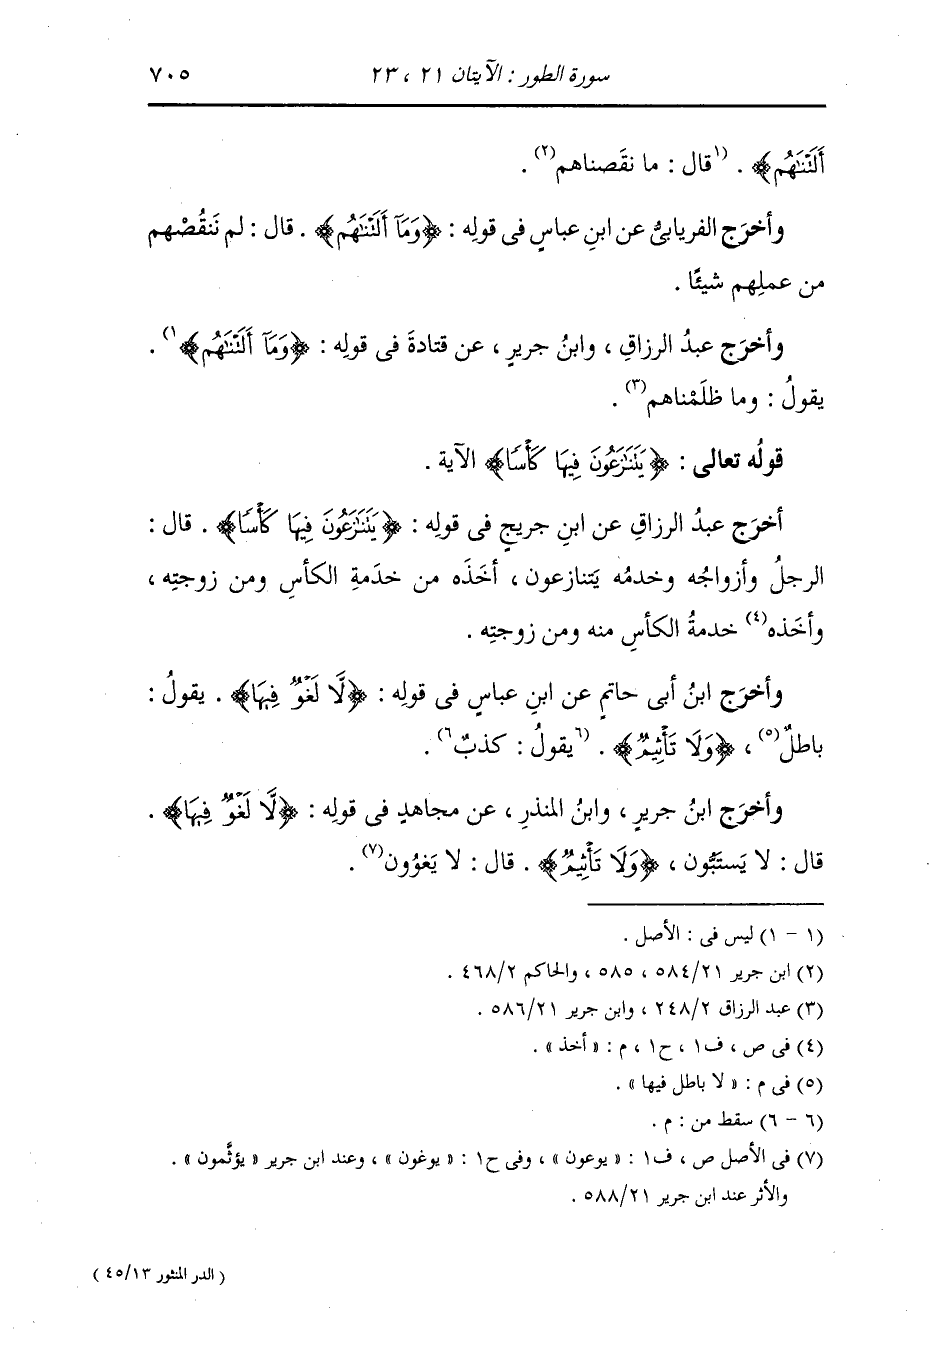 سورة الطور : الآيتان ٢١ ، ٢٣ ٧٠٥
أَلَتْنَٰهُم﴾ . (١قال : ما نقَصناهم(٢) .
وأخرَج الفريابىُّ عن ابنِ عباسٍ فى قولِه : ﴿وَمَآ أَلَتْنَٰهُم﴾ . قال : لم نَنقُصْهم
من عملِهم شيئًا .
وأخرَج عبدُ الرزاقِ ، وابنُ جريرٍ ، عن قتادةَ فى قولِه : ﴿وَمَآ أَلَتْنَٰهُم﴾١) .
يقولُ : وما ظلَمْناهم(٣) .
قولُه تعالى : ﴿يَتَنَٰزَعُونَ فِيهَا كَأْسًا﴾ الآية .
أخرَج عبدُ الرزاقِ عن ابنِ جريجٍ فى قولِه : ﴿يَتَنَٰزَعُونَ فِيهَا كَأْسًا﴾ . قال :
الرجلُ وأزواجُه وخدمُه يَتنازعون ، أخَذَه من خدَمةِ الكأسِ ومن زوجتِه ،
وأخَذه(٤) خدمةُ الكأسِ منه ومن زوجتِه .
وأخرَج ابنُ أبى حاتمٍ عن ابنِ عباسٍ فى قولِه : ﴿لَّا لَغْوٌ فِيهَا﴾ . يقولُ :
باطلٌ(٥) ، ﴿وَلَا تَأْثِيمٌ﴾ . (٦يقولُ : كذبٌ٦) .
وأخرَج ابنُ جريرٍ ، وابنُ المنذرِ ، عن مجاهدٍ فى قولِه : ﴿لَّا لَغْوٌ فِيهَا﴾ .
قال : لا يَستَبُّون ، ﴿وَلَا تَأْثِيمٌ﴾ . قال : لا يَغوُون(٧) .
(١ - ١) ليس فى : الأصل .
(٢) ابن جرير ٥٨٤/٢١ ، ٥٨٥ ، والحاكم ٤٦٨/٢ .
(٣) عبد الرزاق ٢٤٨/٢ ، وابن جرير ٥٨٦/٢١ .
(٤) فى ص ، ف١ ، ح١ ، م : « أخذ » .
(٥) فى م : « لا باطل فيها » .
(٦ - ٦) سقط من : م .
(٧) فى الأصل ص ، ف١ : « يوعون » ، وفى ح١ : « يوغون » ، وعند ابن جرير « يؤثَّمون » .
والأثر عند ابن جرير ٥٨٨/٢١ .
( الدر المنثور ٤٥/١٣ )